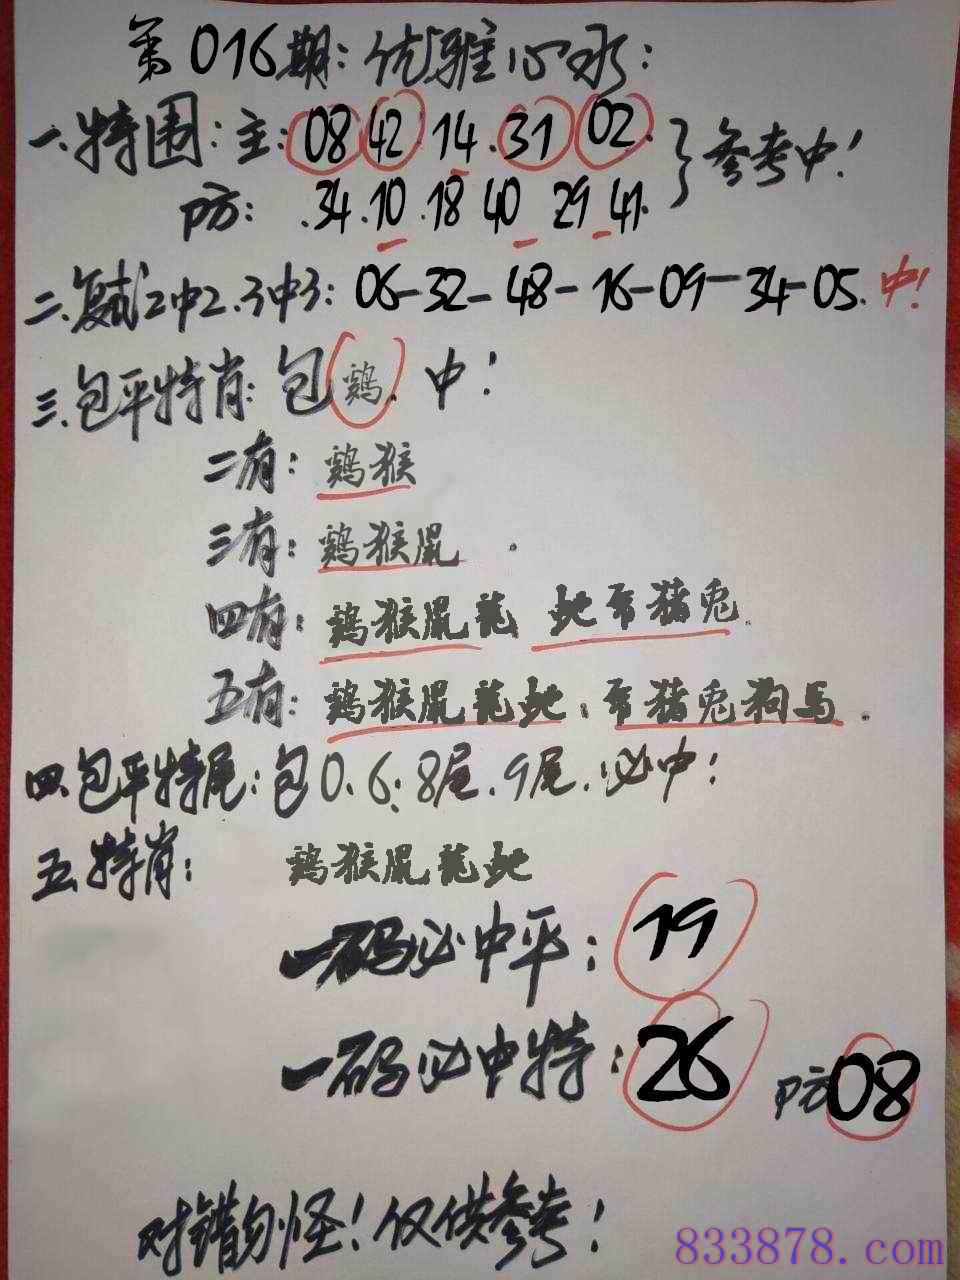 第016期：优雅心水：
一.特围：主：08 42.14.31 02. 参考中！
防：.34.10.18 40 29 41.
二.复式2中2.3中3：06-32-48-16-09-34-05.中！
三.包平特肖：包鷄.中！
二有：鷄猴
三有：鷄猴鼠.
四有：鷄猴鼠龍 虵马猪兎
五有：鷄猴鼠龍虵：马猪兎狗马.
四.包平特尾：包0.6：8尾.9尾.必中！
五.特肖：鷄猴鼠龍虵
一码必中平：19
一码必中特：26 防08
对错勿怪！仅供参考！
833878.com